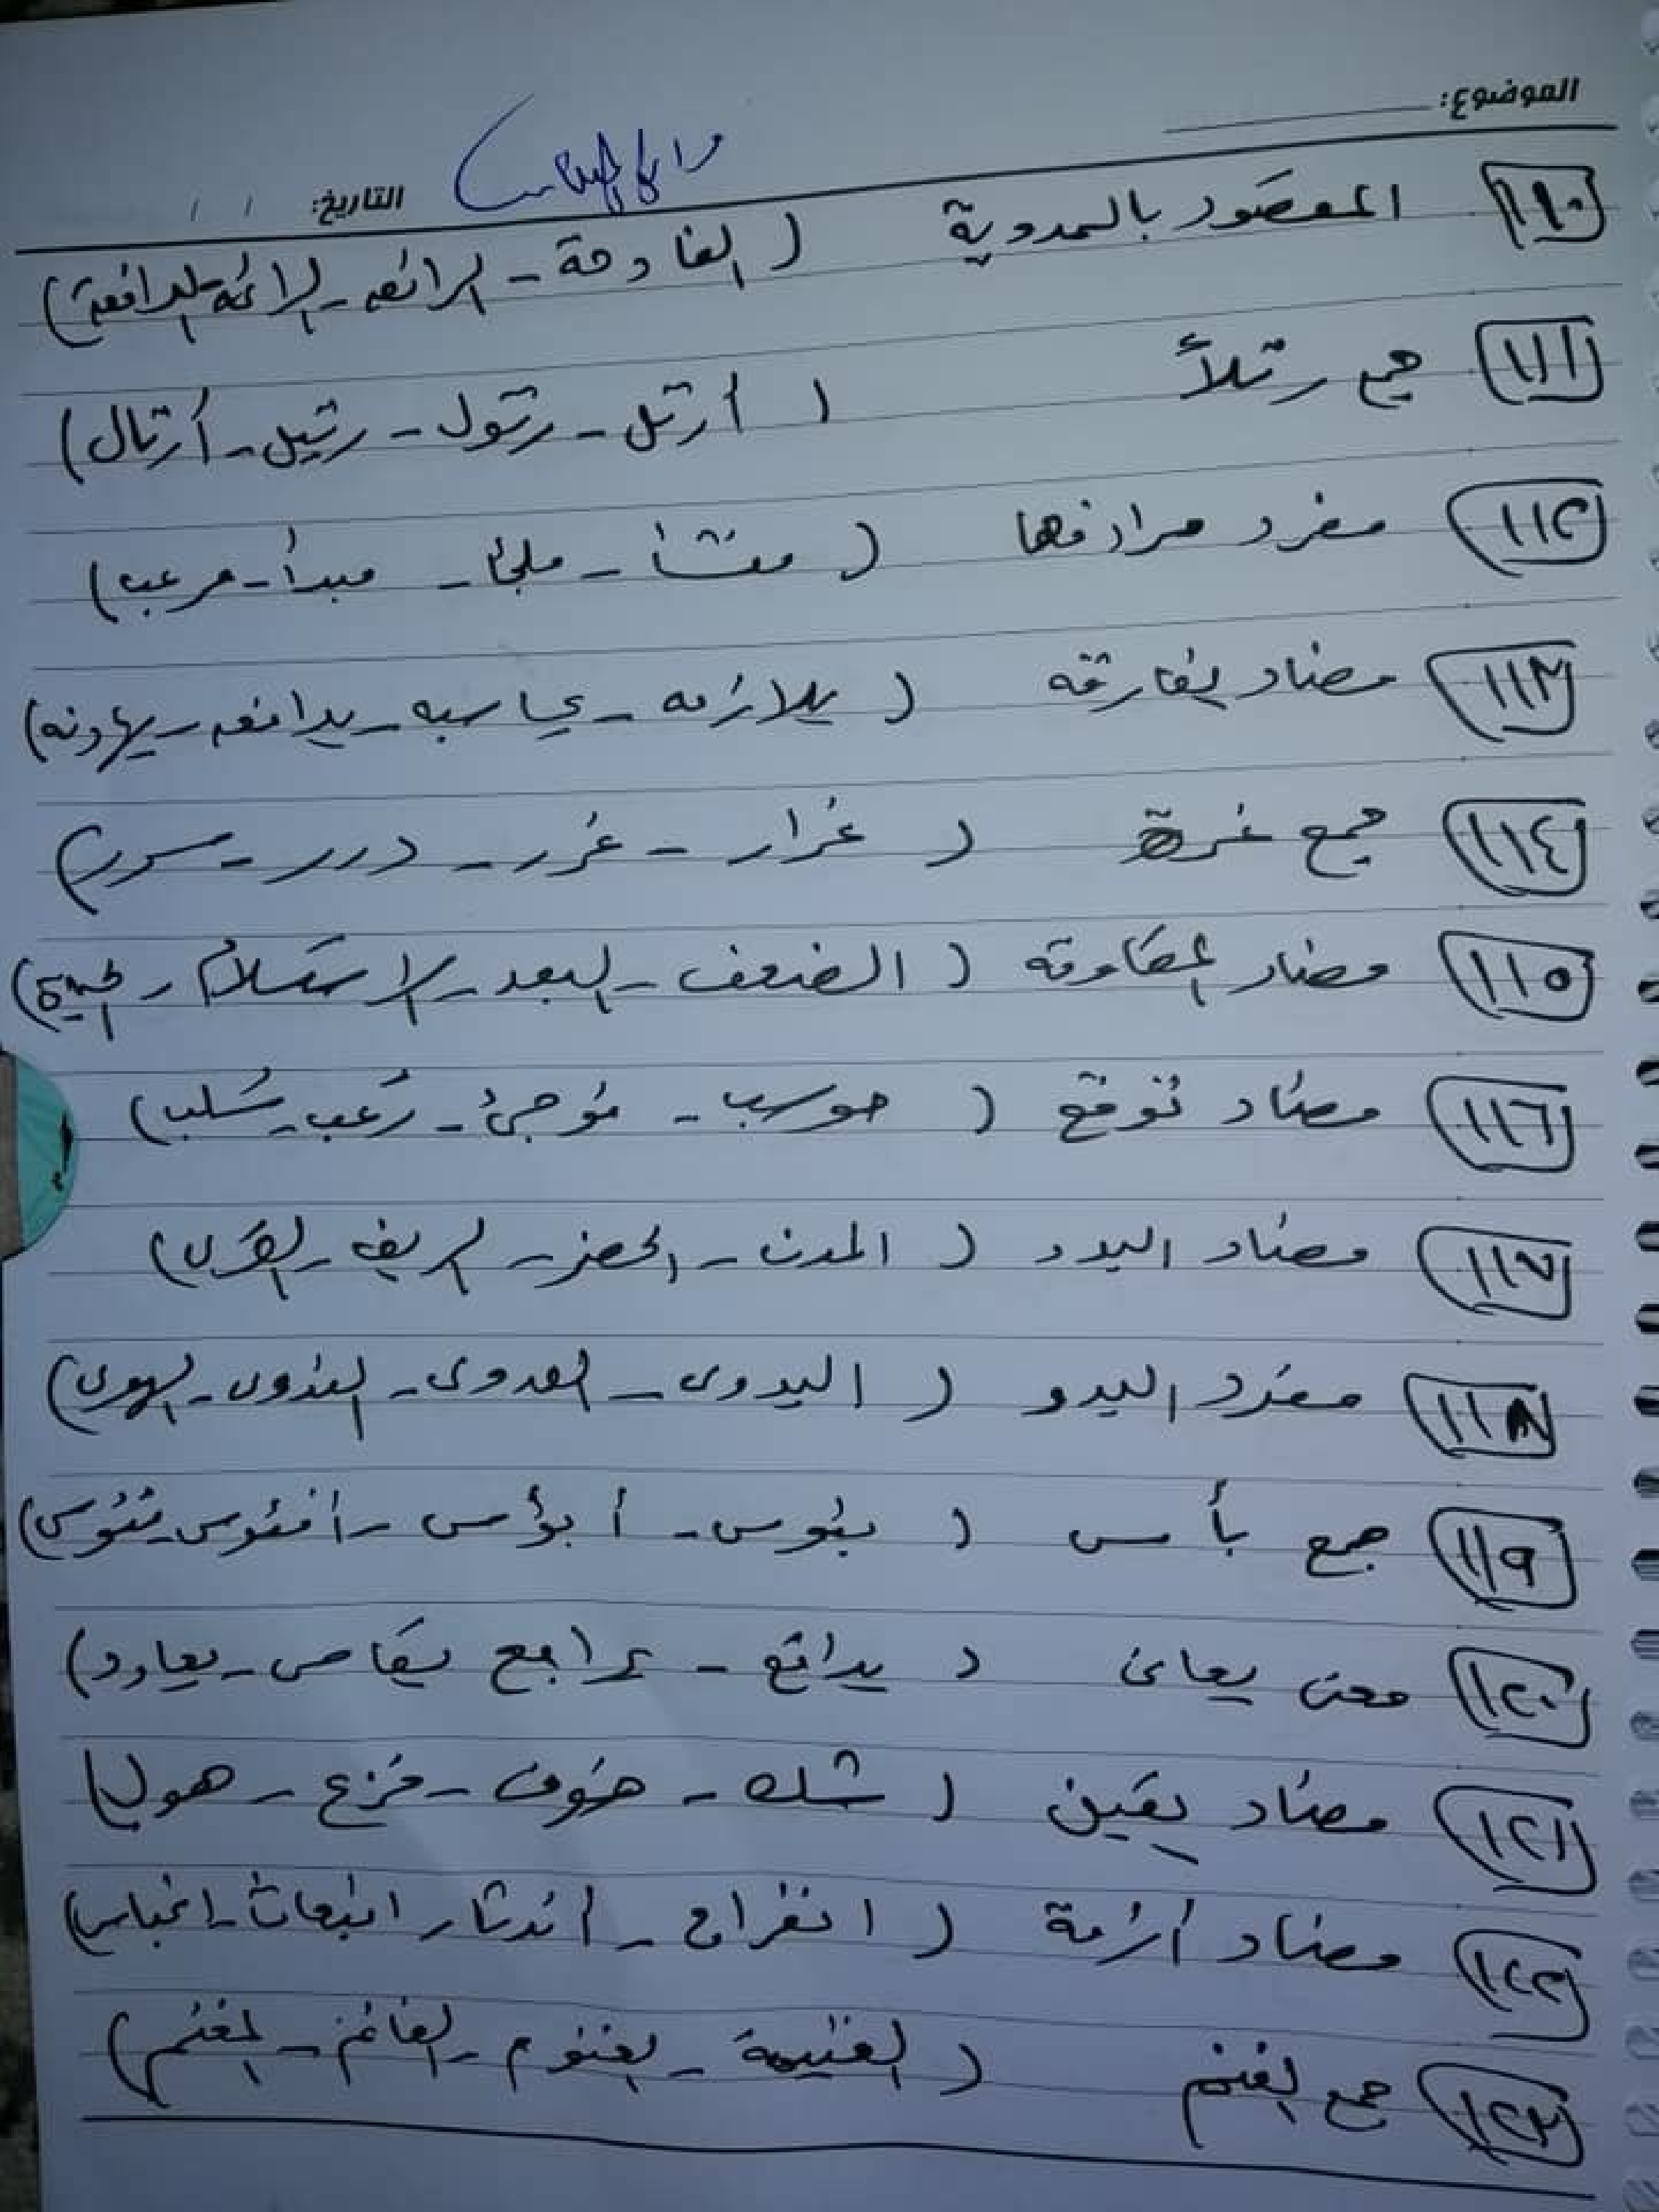 الموضوع:
التاريخ: / /
١١٠ المقصود بالمدوية ( الفادحة - الرائعه - الرائحة - الدافعة )
١١١ جمع رتلاً ( أرتل - رتول - رتيل - أرتال )
١١٢ مفرد مرادفها ( منشأ - ملجأ - مبدأ - مرعب )
١١٣ مضاد يفارقه ( يلازمه - يحاسبه - يدافعه - يهادنه )
١١٤ جمع غرة ( غرار - غرر - درر - سرر )
١١٥ مضاد المقاومة ( الضعف - البعد - الاستسلام - )
١١٦ مضاد توقع ( حوسب - فوجئ - رعب - سلب )
١١٧ مضاد البدو ( المدن - الحضر - الريف - القرى )
١١٨ مفرد البدو ( البدوى - العدوى - )
١١٩ جمع بأس ( بئوس - أبؤس - أفئوس - فئوس )
١٢٠ معنى يعانى ( يدافع - يراجع يقاسى - يعاود )
١٢١ مضاد يقين ( شك - خوف - فزع - هول )
١٢٢ مضاد أزمة ( انفراج - أندثار انبعاث - )
١٢٣ جمع الغنم ( الغنيمة - الغنوم - الغانم - المغنم )